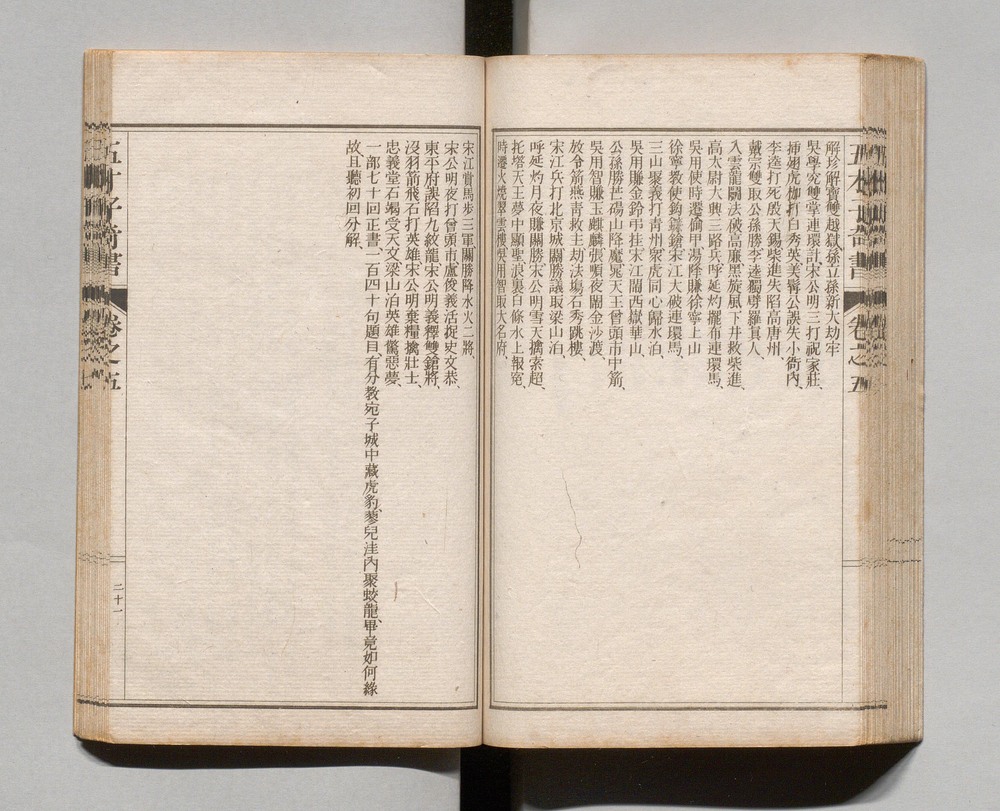 解珍解寶雙越獄孫立孫新大劫牢
吳學究雙掌連環計宋公明三打祝家莊
揷翅虎枷打白秀英美髯公誤失小衙內、
李逵打死殷天錫柴進失陷高唐州、
戴宗雙取公孫勝李逵獨劈羅眞人、
入雲龍鬭法破高廉黑旋風下井救柴進、
高太尉大興三路兵呼延灼擺布連環馬、
吳用使時遷偷甲湯隆賺徐寧上山
徐寧敎使鈎鐮鎗宋江大破連環馬、
三山聚義打靑州衆虎同心歸水泊、
吳用賺金鈴弔挂宋江鬧西嶽華山、
公孫勝芒碭山降魔晁天王曾頭市中箭、
吳用智賺玉麒麟張順夜鬧金沙渡、
放冷箭燕靑救主劫法場石秀跳樓、
宋江兵打北京城關勝議取梁山泊、
呼延灼月夜賺關勝宋公明雪天擒索超、
托塔天王夢中顯聖浪裏白條水上報冤、
時遷火燒翠雲樓吳用智取大名府、
宋江賞馬步三軍關勝降水火二將、
宋公明夜打曾頭市盧俊義活捉史文恭、
東平府誤陷九紋龍宋公明義釋雙鎗將、
沒羽箭飛石打英雄宋公明棄糧擒壯士、
忠義堂石碣受天文梁山泊英雄驚惡夢、
一部七十回正書、一百四十句題目有分敎宛子城中藏虎豹、蓼兒洼內聚蛟龍、畢竟如何緣
故且聽初回分解、
五才子奇書
卷之五
二十一